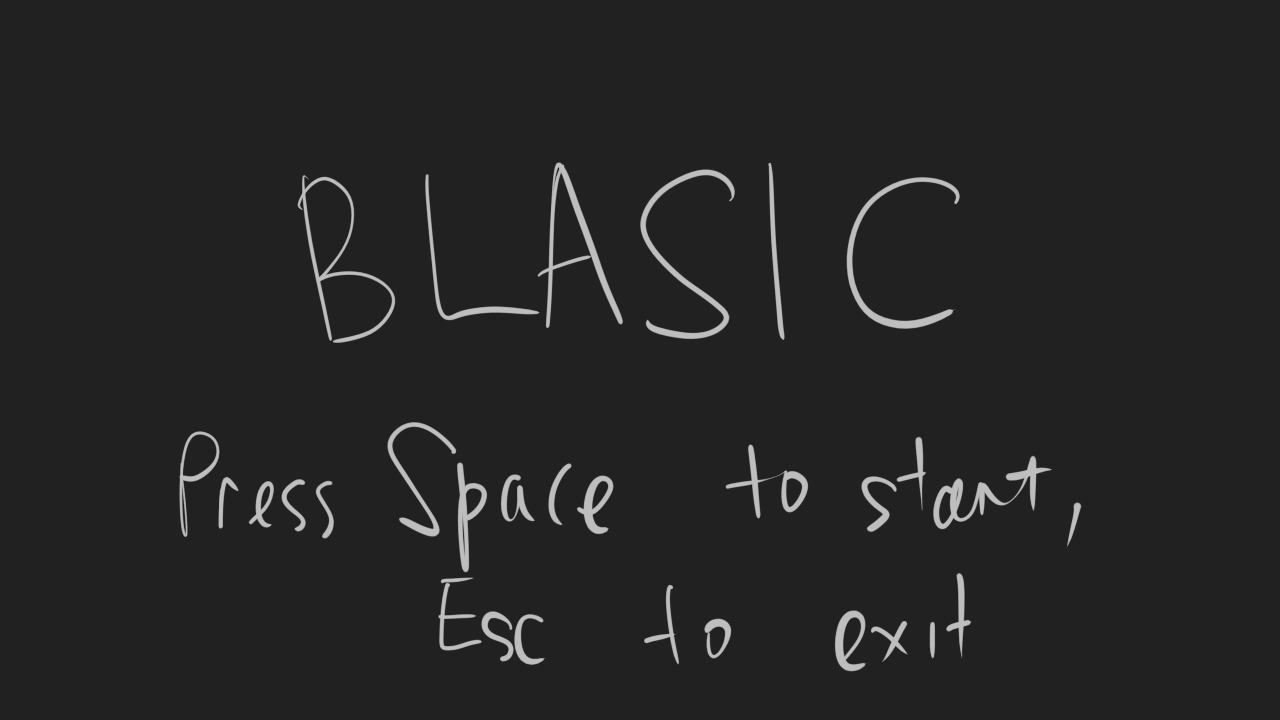 BLASIC
Press Space to start,
Esc to exit